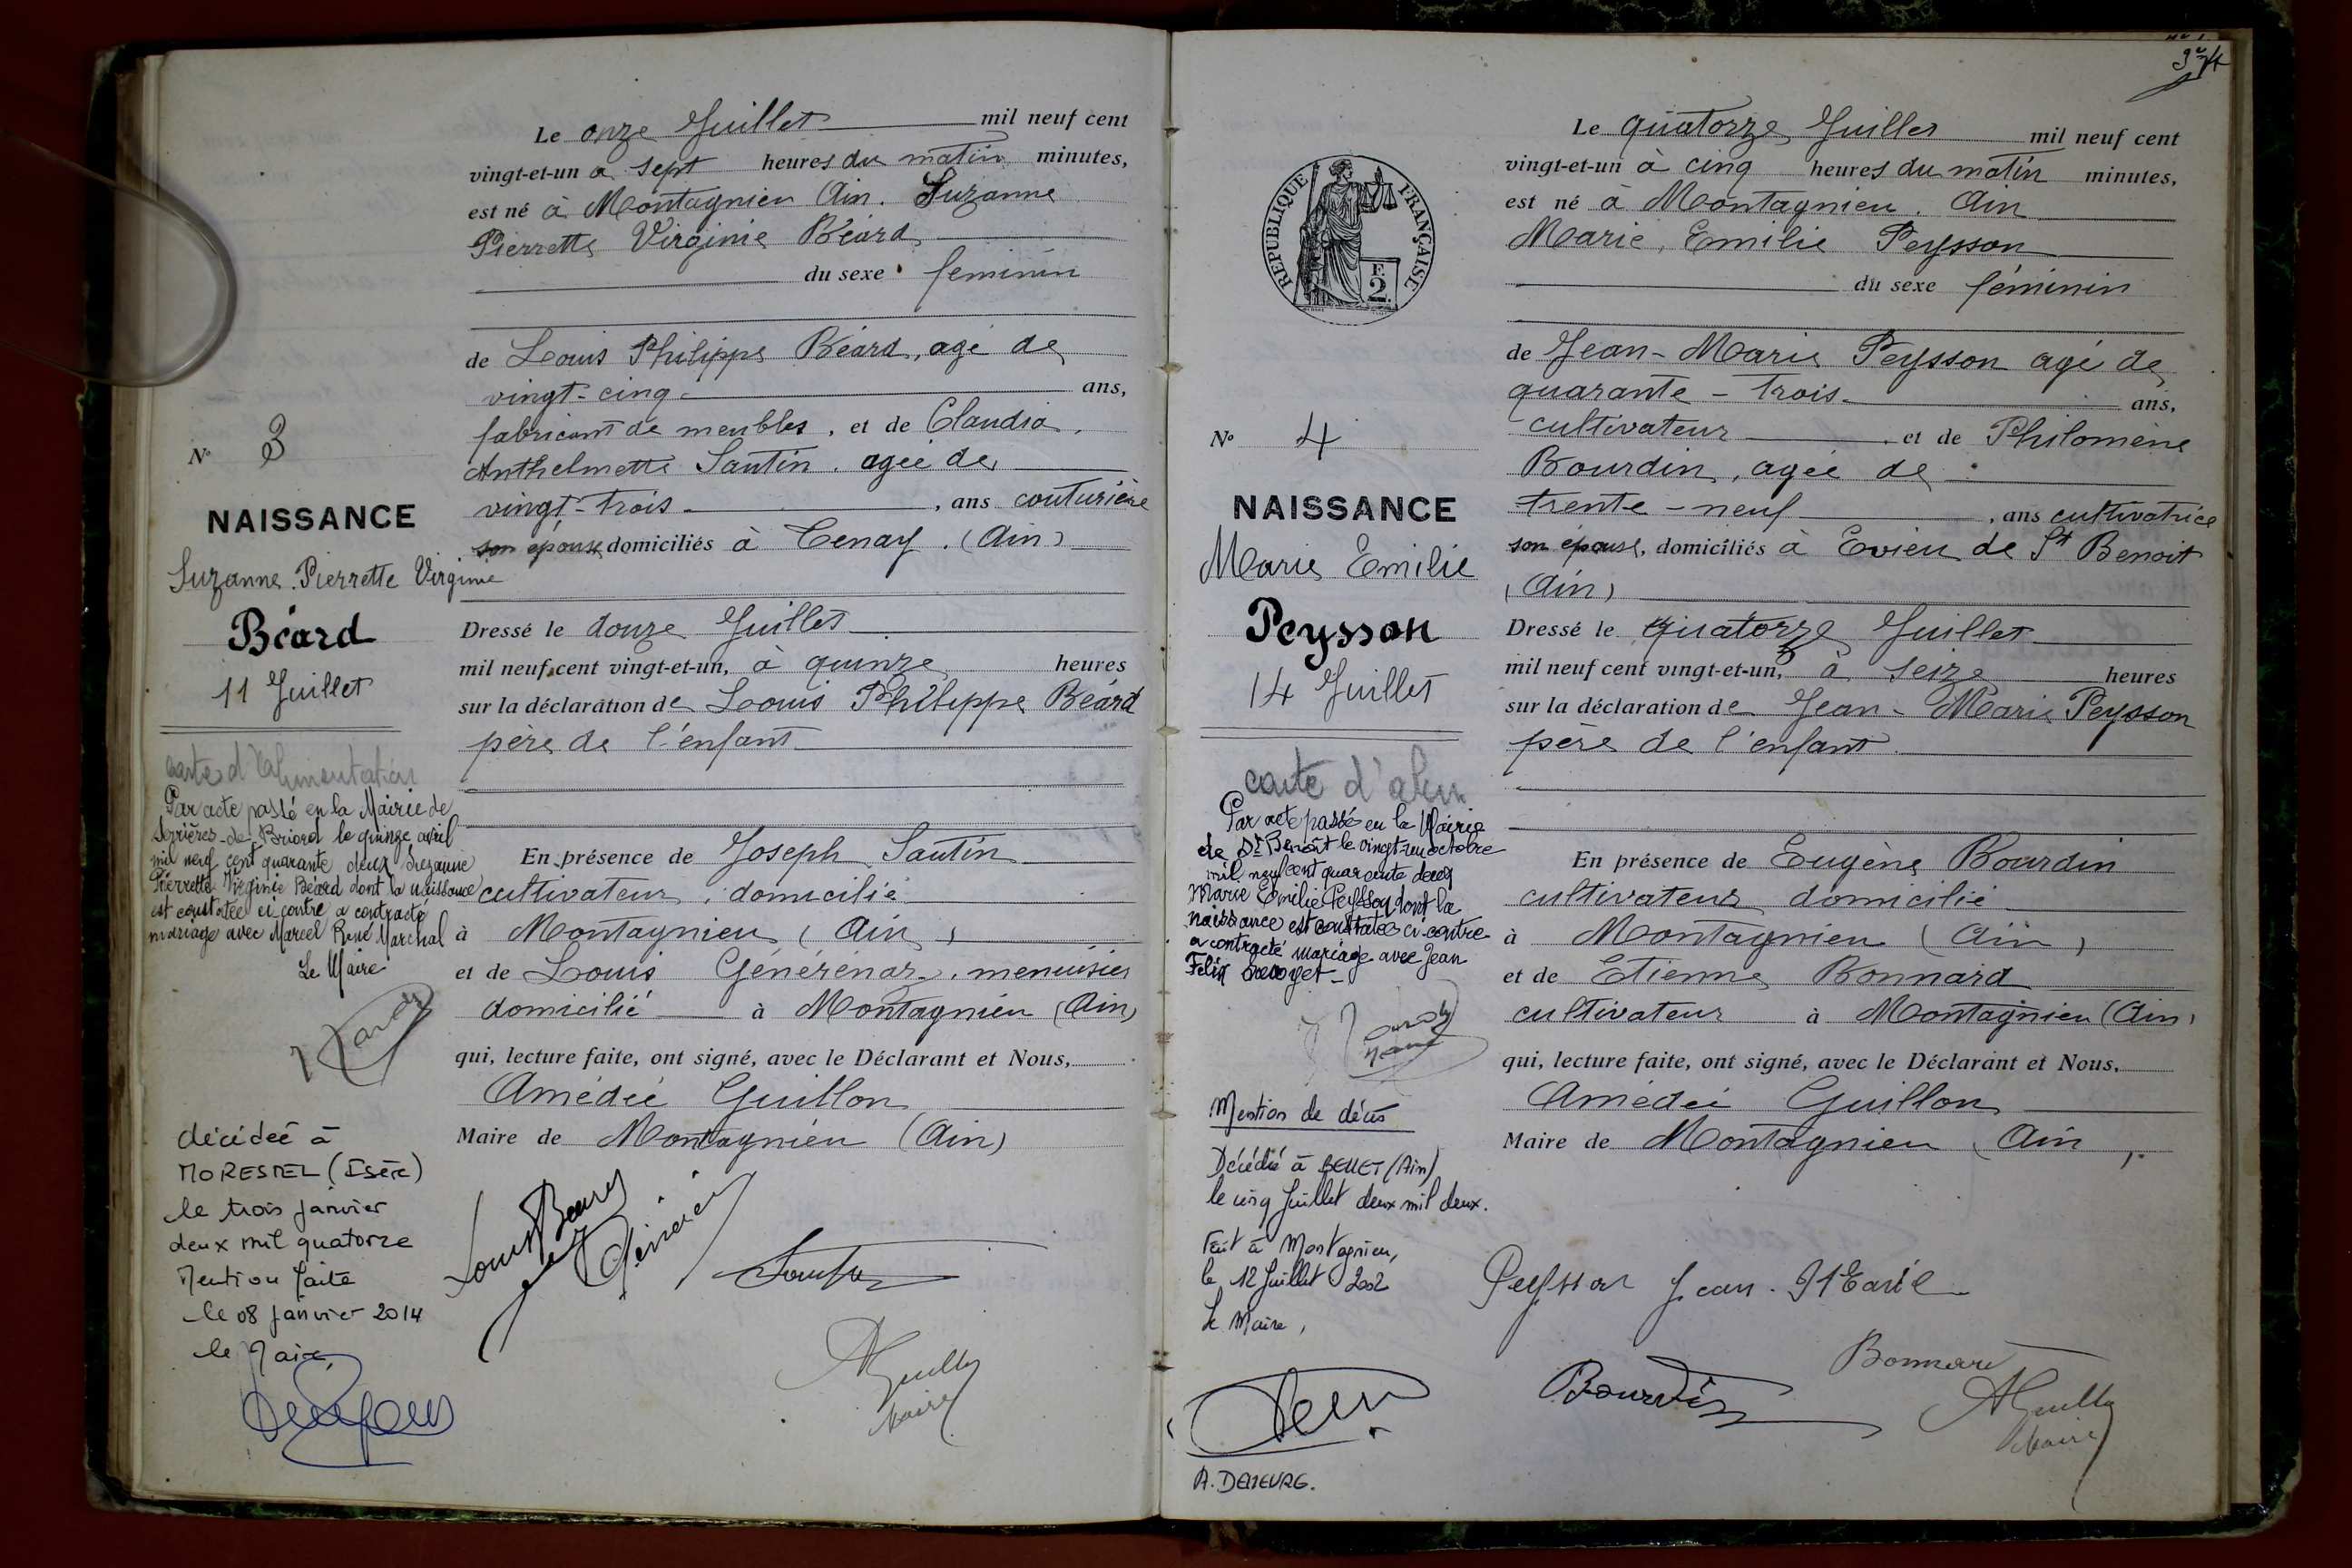 Le onze Juillet mil neuf cent
vingt-et-un à sept heures du matin minutes,
est né à Montagnieu Ain. Suzanne
Pierrette Virginie Béard
du sexe feminin
de Louis Philippe Béard, agé de
vingt-cinq ans,
fabricant de meubles, et de Claudia
Anthelmette Santin, agée de
vingt-trois, ans couturière
son épouse, domiciliés à Tenay. (Ain)
Dressé le douze Juillet
mil neuf cent vingt-et-un, à quinze heures
sur la déclaration de Louis Philippe Béard
père de l'enfant
En présence de Joseph Santin
cultivateur, domicilié
à Montagnieu (Ain)
et de Louis Générénaz, menuisier
domicilié à Montagnieu (Ain)
qui, lecture faite, ont signé, avec le Déclarant et Nous,
Amédée Guillon
Maire de Montagnieu (Ain)
Louis Béard
Santin
AGuillon
Maire
N° 3
NAISSANCE
Suzanne Pierrette Virginie
Béard
11 Juillet
carte d'alimentation
Par acte passé en la Mairie de
Serrières-de-Briord le quinze avril
mil neuf cent quarante deux Suzanne
Pierrette Virginie Béard dont la naissance
est constatée ci contre a contracté
mariage avec Marcel René Marchal
Le Maire
décédée à
MORESTEL (Isère)
le trois janvier
deux mil quatorze
Mention faite
le 08 janvier 2014
le Maire,
Le quatorze Juillet mil neuf cent
vingt-et-un à cinq heures du matin minutes,
est né à Montagnieu. Ain
Marie, Emilie Peysson
du sexe féminin
de Jean-Marie Peysson agé de
quarante-trois ans,
cultivateur, et de Philomène
Bourdin, agée de
trente-neuf, ans cultivatrice
son épouse, domiciliés à Evieu de St Benoit
(Ain)
Dressé le quatorze Juillet
mil neuf cent vingt-et-un, à seize heures
sur la déclaration de Jean-Marie Peysson
père de l'enfant
En présence de Eugène Bourdin
cultivateur domicilié
à Montagnieu (Ain)
et de Etienne Bonnard
cultivateur à Montagnieu (Ain)
qui, lecture faite, ont signé, avec le Déclarant et Nous,
Amédée Guillon
Maire de Montagnieu (Ain).
Peysson Jean-Marie
Bonnard
Bourdin
AGuillon
Maire
RÉPUBLIQUE FRANÇAISE
F. 2.
N° 4
NAISSANCE
Marie Emilie
Peysson
14 Juillet
carte d'alim
Par acte passé en la Mairie
de St Benoît le vingt-un octobre
mil neuf cent quarante deux
Marie Emilie Peysson dont la
naissance est constatée ci-contre
a contracté mariage avec Jean
Felix
Mention de décès
Décédée à BELLEY (Ain)
le cinq Juillet deux mil deux.
Fait à Montagnieu,
le 12 Juillet 2002
Le Maire,